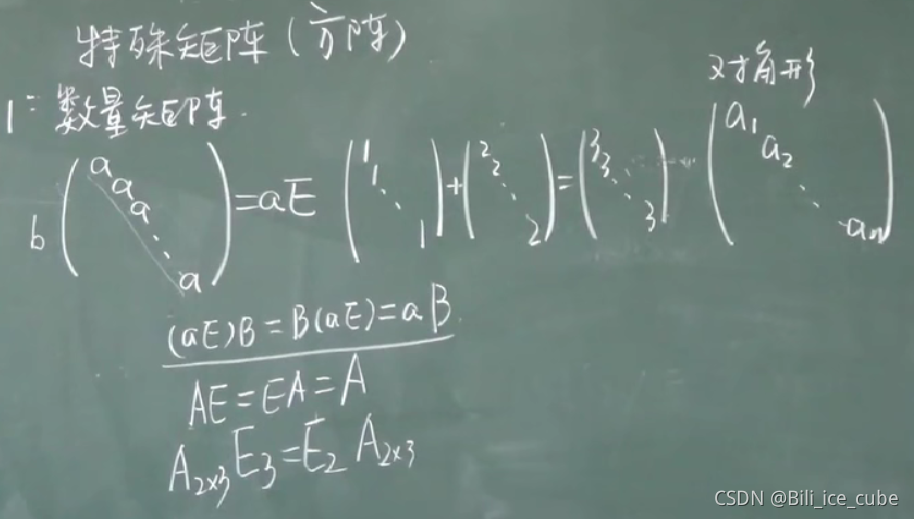 特殊矩阵(方阵)
1° 数量矩阵.
对角形
b ( a a a ⋱ a ) = aE ( 1 1 ⋱ 1 ) + ( 2 2 ⋱ 2 ) = ( 3 3 ⋱ 3 ) ( a₁ a₂ ⋱ aₙ )
(aE)B = B(aE) = aB.
AE = EA = A
A₂ₓ₃E₃ = E₂ A₂ₓ₃
CSDN @Bili_ice_cube